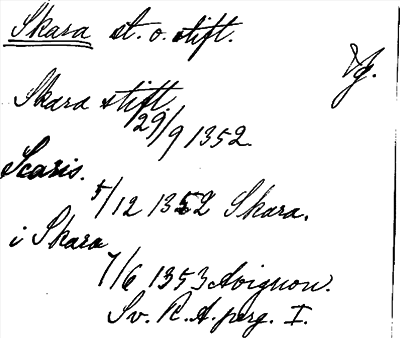 Skara st. o. stift.
Vg.
Skara stift.
29/9 1352
Scaris.
5/12 1352 Skara.
i Skara
7/6 1353 Avignon.
Sv. R. A. perg. I.